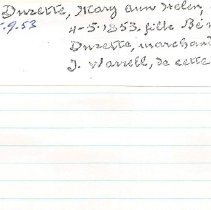 Duzette, Mary Ann Helen,
.9.53 4-5-1853. fille
Duzette, marchand
J. de cette